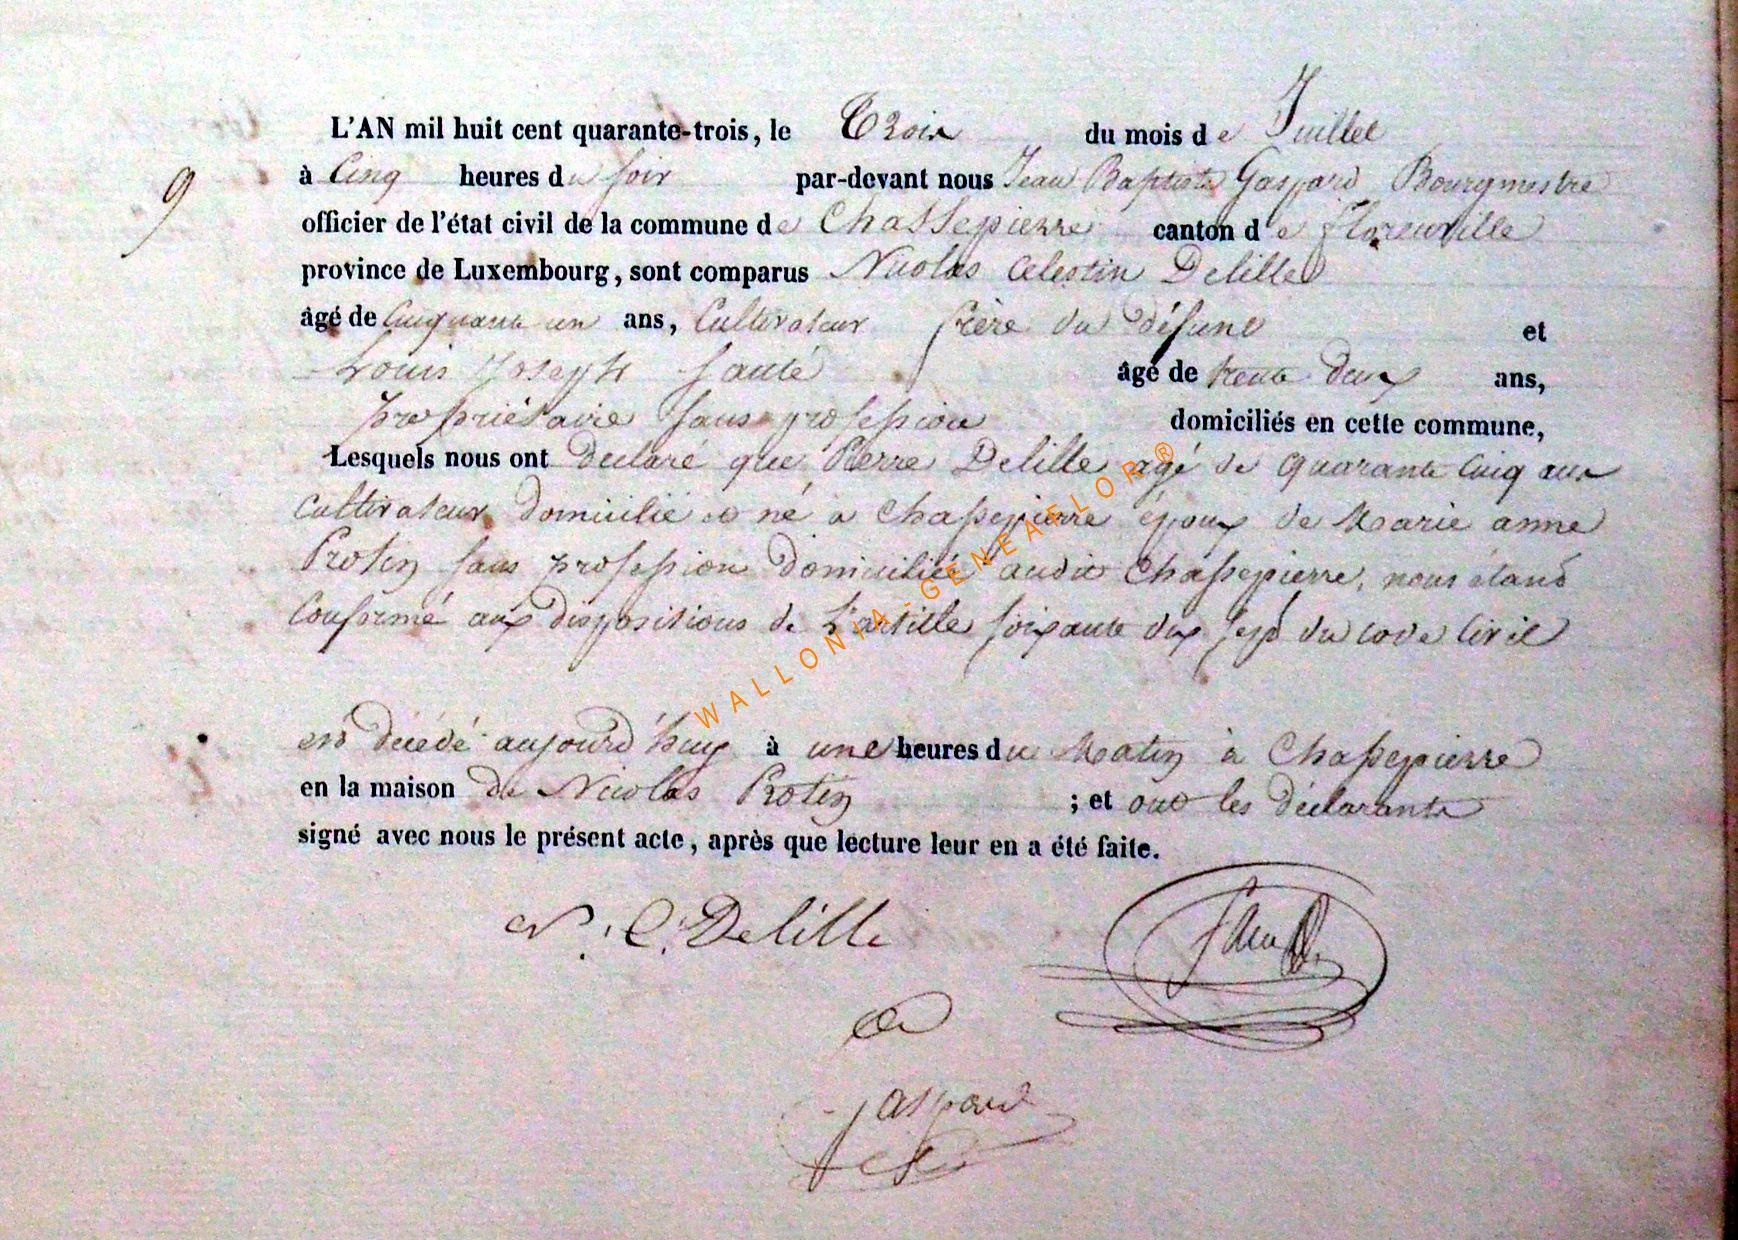 9
L'AN mil huit cent quarante-trois, le Trois du mois de Juillet
à Cinq heures du soir par-devant nous Jean Baptiste Gaspard Bourgmestre
officier de l'état civil de la commune de Chassepierre canton de Florenville
province de Luxembourg, sont comparus Nicolas Celestin Delille
âgé de Cinquante un ans, Cultivateur frère du défunt et
Louis Joseph âgé de trente deux ans,
propriétaire sans profession domiciliés en cette commune,
Lesquels nous ont déclaré que Pierre Delille agé de quarante Cinq ans
Cultivateur domicilié et né à Chassepierre époux de Marie anne
Protin sans profession domiciliée audit Chassepierre, nous étant
Conformé aux dispositions de L'article soixante dix sept du code Civil
est décédé aujourd'huy à une heures du Matin à Chassepierre
en la maison de Nicolas Protin ; et ont les déclarants
signé avec nous le présent acte, après que lecture leur en a été faite.
N. C. Delille
Gaspard
WALLONIA-GENEAFLOR®